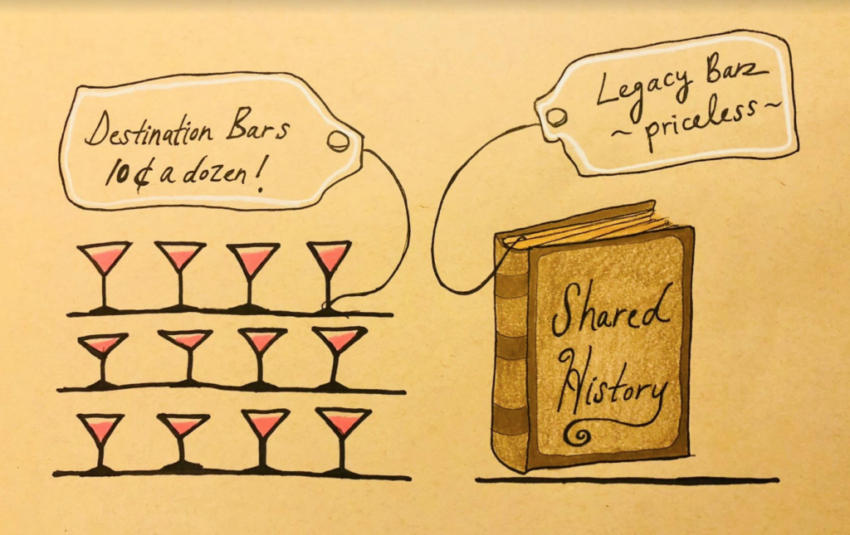 Destination Bars
10¢ a dozen!
Legacy Bars
~ priceless ~
Shared
History